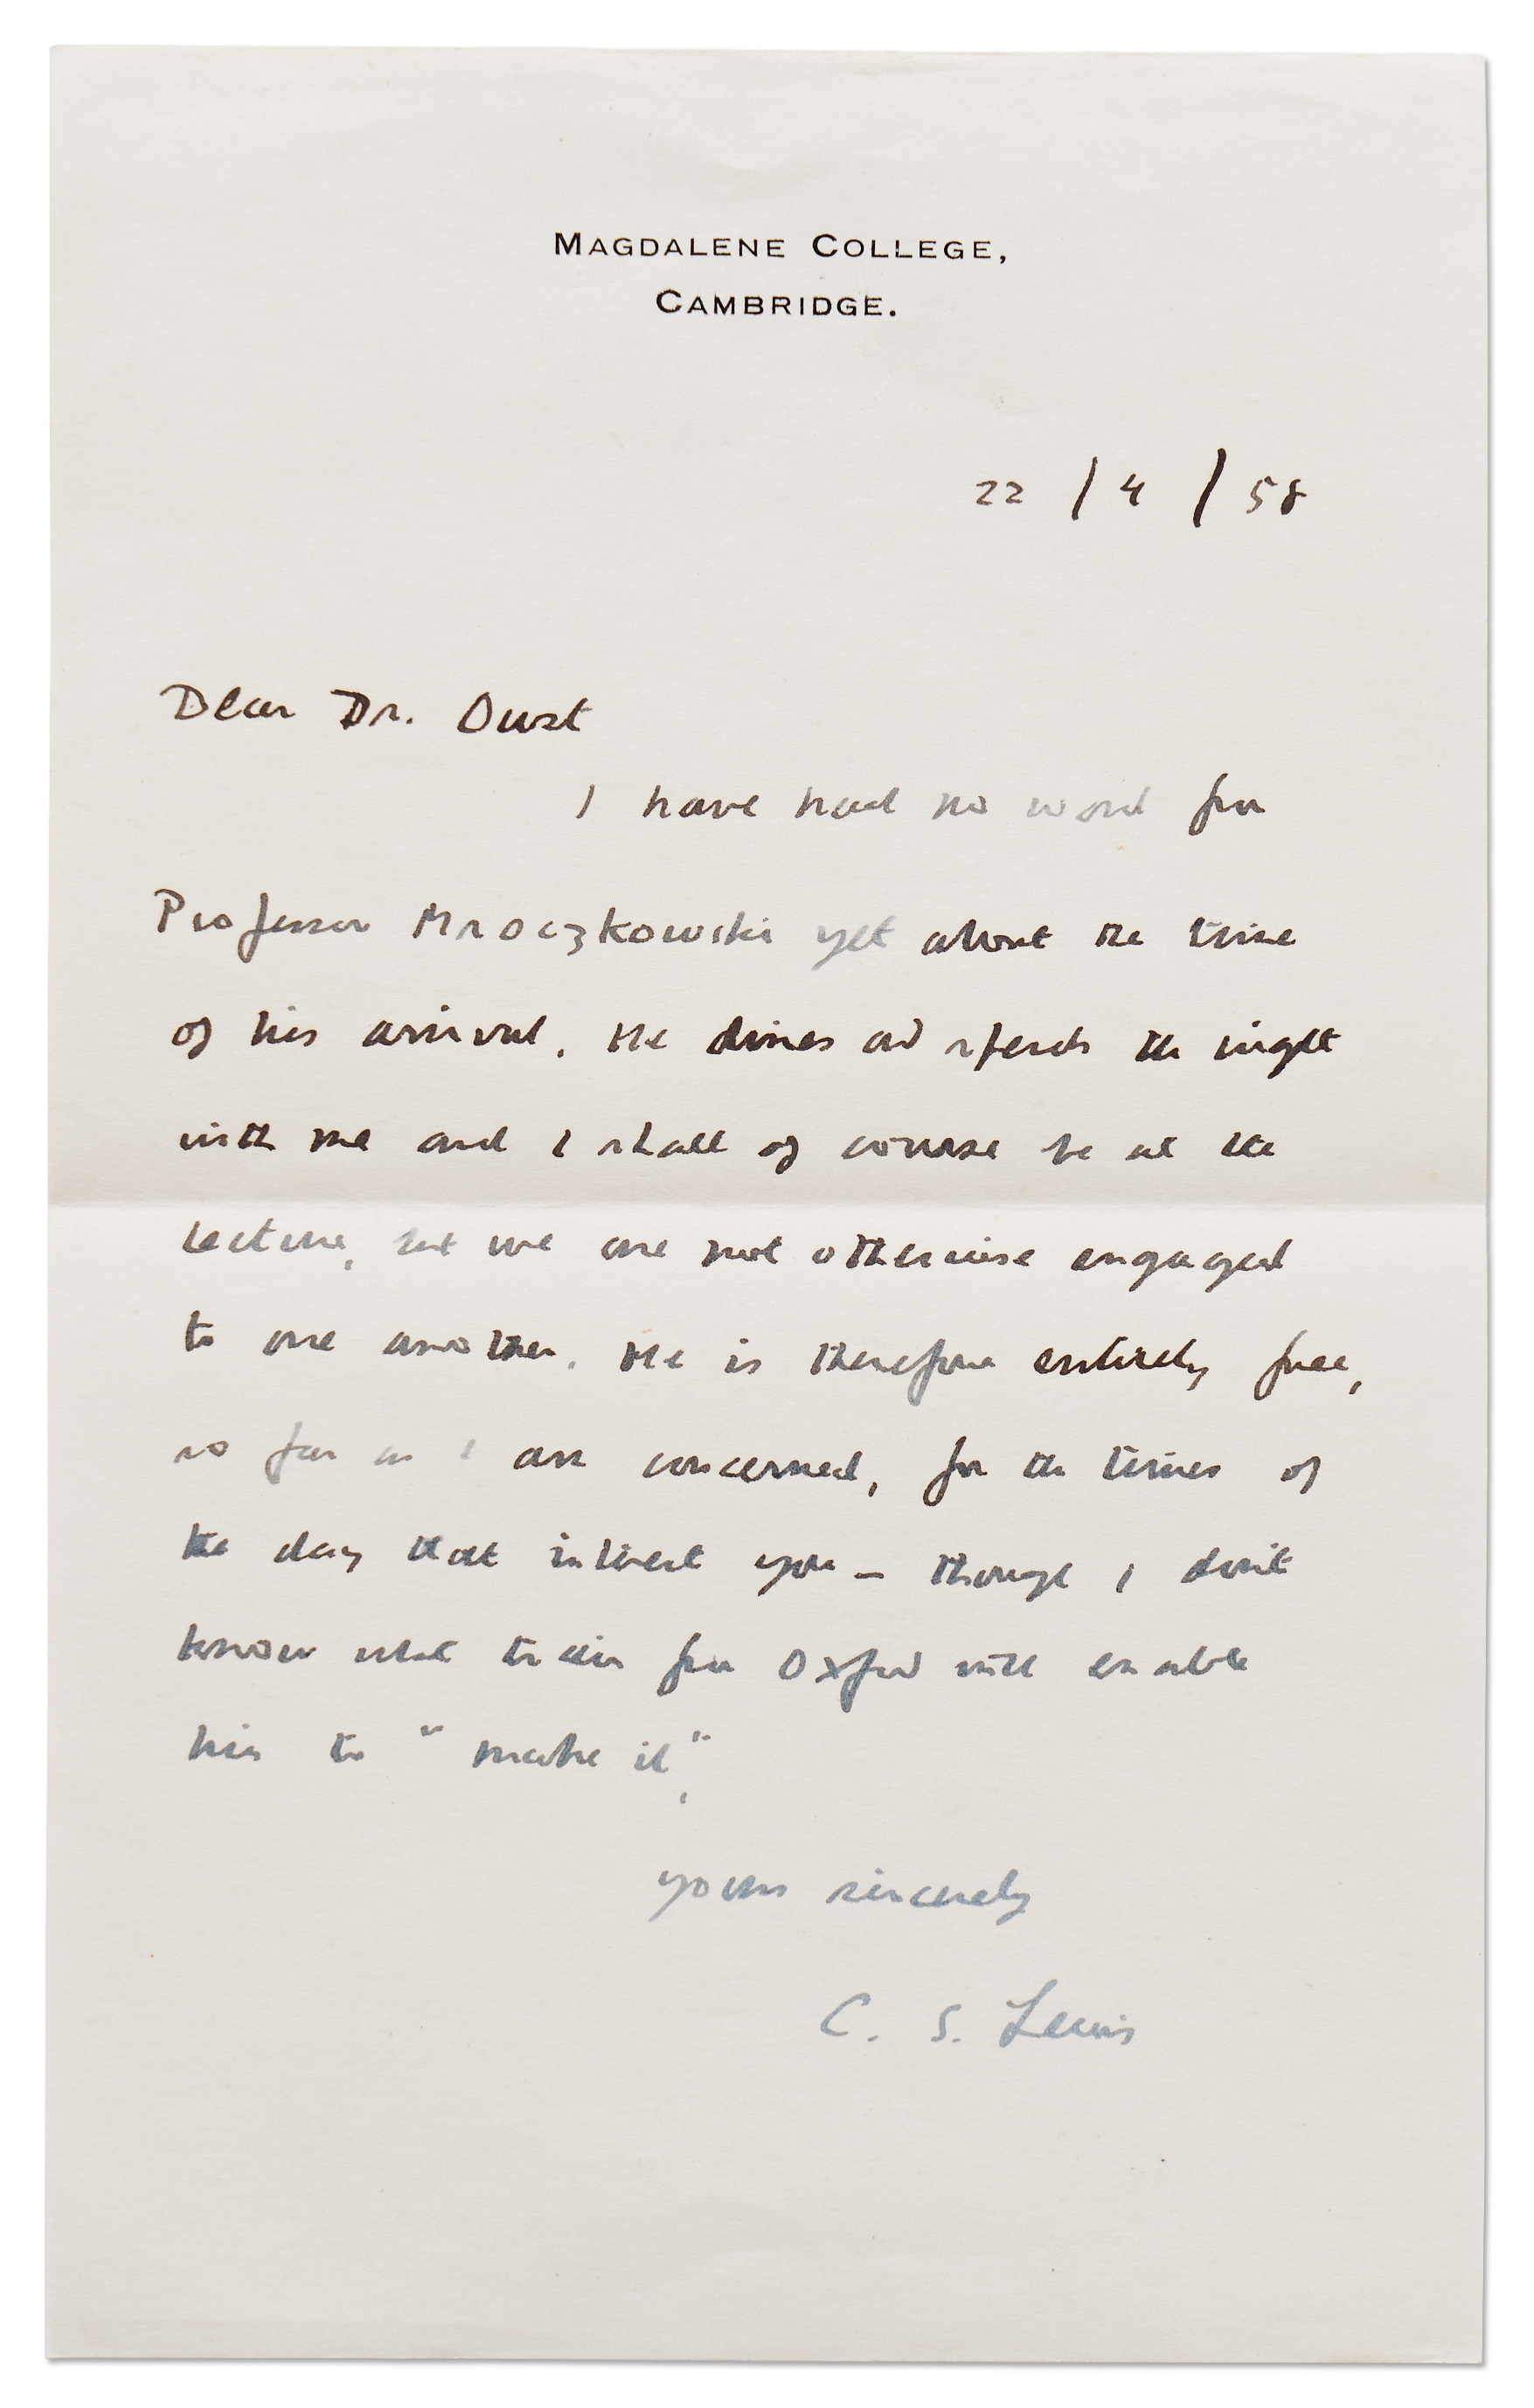 MAGDALENE COLLEGE,
CAMBRIDGE.
22 / 4 / 58
Dear Dr. Oust
I have had no word from
Professor Mroczkowski yet about the time
of his arrival. He dines and spends the night
with me and I shall of course be at the
lecture, but we are not otherwise engaged
to one another. He is therefore entirely free,
so far as I am concerned, for the times of
the day that interest you – though I don't
know what train from Oxford will enable
him to "make it".
yours sincerely
C. S. Lewis